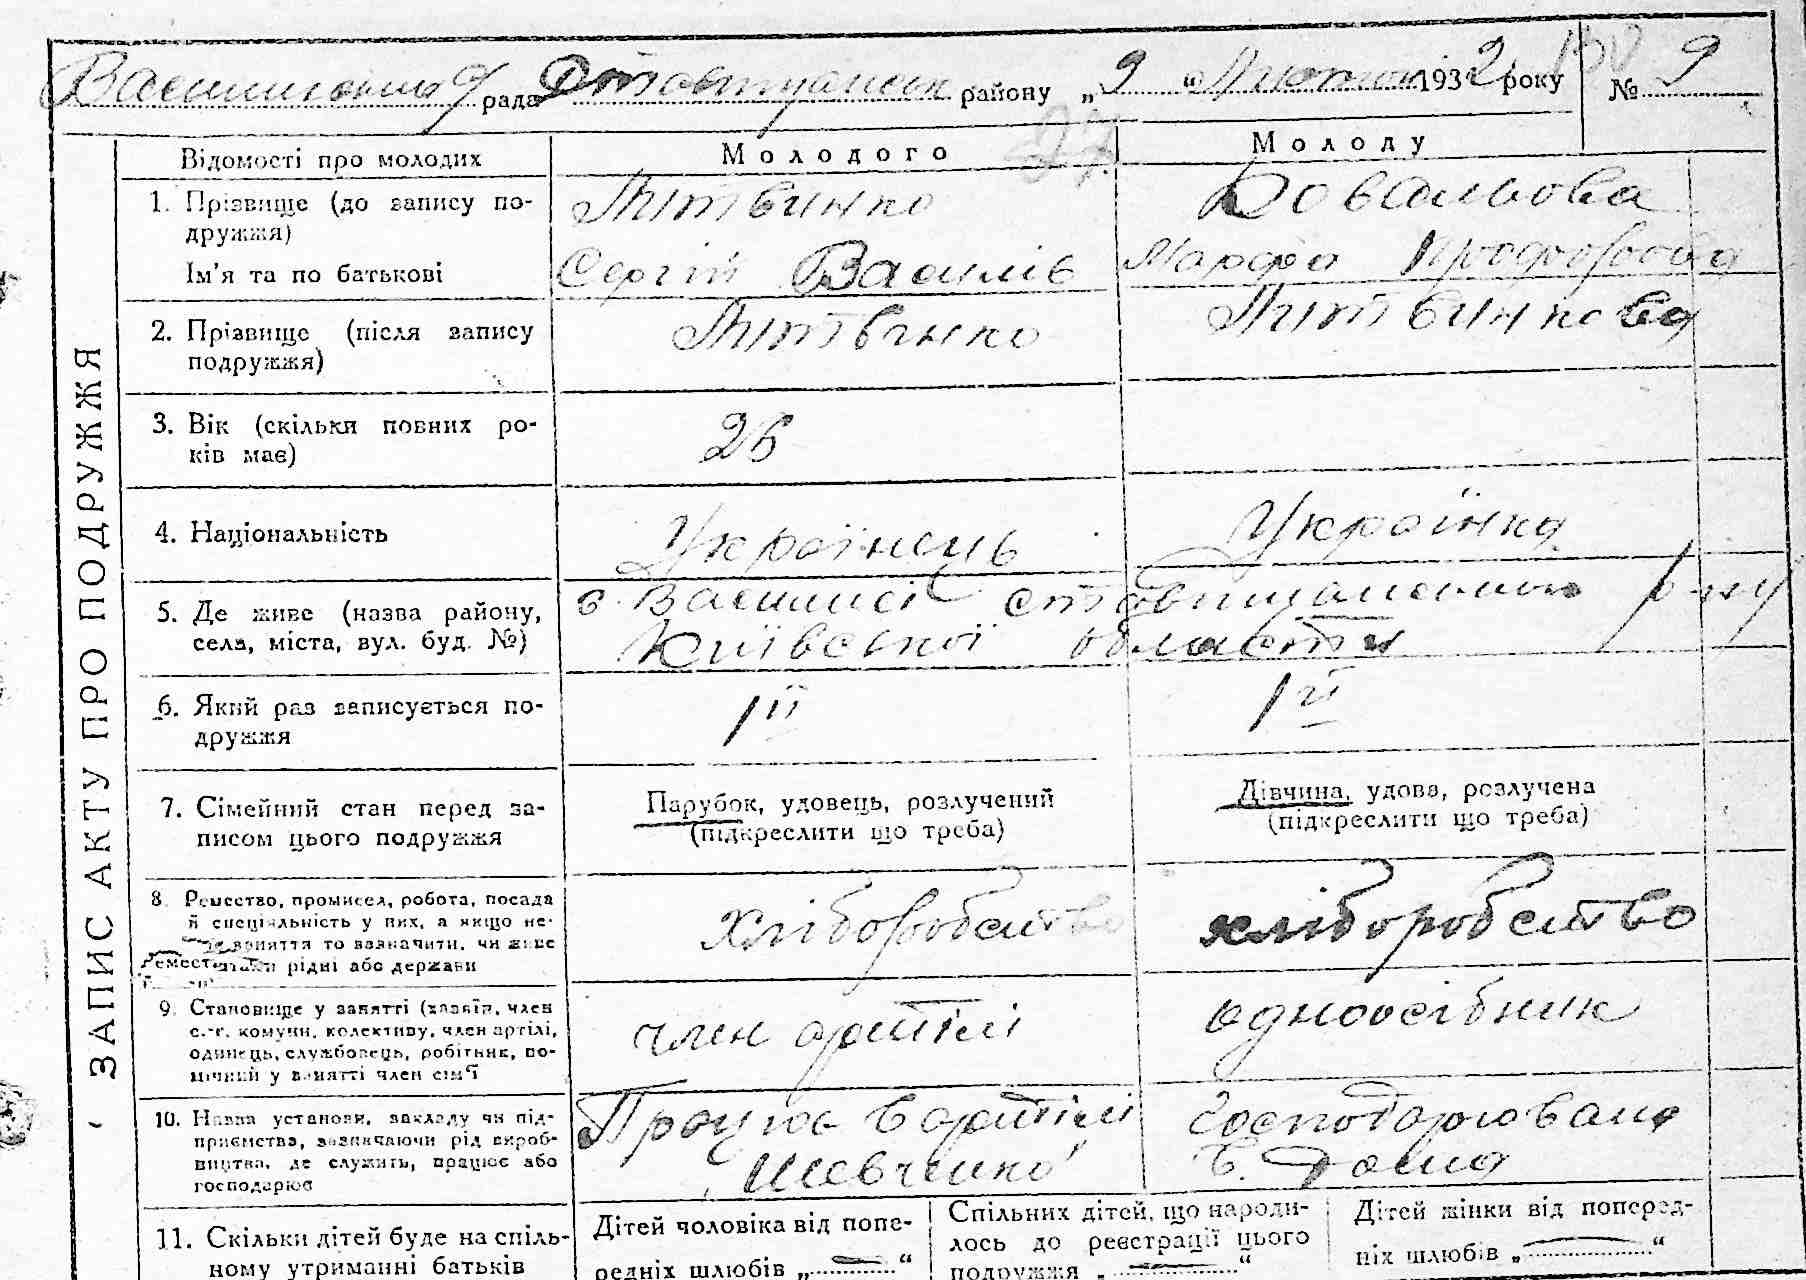 рада районy „9“ Лютого 1932 року № 9
ЗАПИС АКТУ ПРО ПОДРУЖЖЯ
Відомості про молодих Молодого Молоду
1. Прізвище (до запису по-
дружжя) Литвинко Ковальова
Ім'я та по батькові Сергій Василів Марфа
2. Прізвище (після запису
подружжя) Литвинко Литвинкова
3. Вік (скільки повних ро-
ків має) 26
4. Національність Українець Українка
5. Де живе (назва району,
села, міста, вул. буд. №) с. Ставищанського р-ну
Київської области
6. Який раз записується по-
дружжя 1й 1й
7. Сімейний стан перед за-
писом цього подружжя
Парубок, удовець, розлучений
(підкреслити що треба)
Дівчина, удова, розлучена
(підкреслити що треба)
8. Ремество, промисел, робота, посада
й спеціяльність у них, а якщо не-
заняття то зазначити, чи живе
рідні або держави
хліборобство хліборобство
9. Становище у занятті (хазяїн, член
с.-г. комуни, колективу, член артілі,
одинець, службовець, робітник, по-
мічний у занятті член сім'ї
член артілі одноосібник
10. Назва установи, закладу чи під-
приємства, зазначаючи рід вироб-
ництва, де служить, працює або
господарює
Працює в артілі
Шевченко
Господарювала
в дома
11. Скільки дітей буде на спіль-
ному утриманні батьків
Дітей чоловіка від попе-
редніх шлюбів „ “
Спільних дітей, що народи-
лось до реєстрації цього
подружжя „ “
Дітей жінки від поперед-
ніх шлюбів „ “